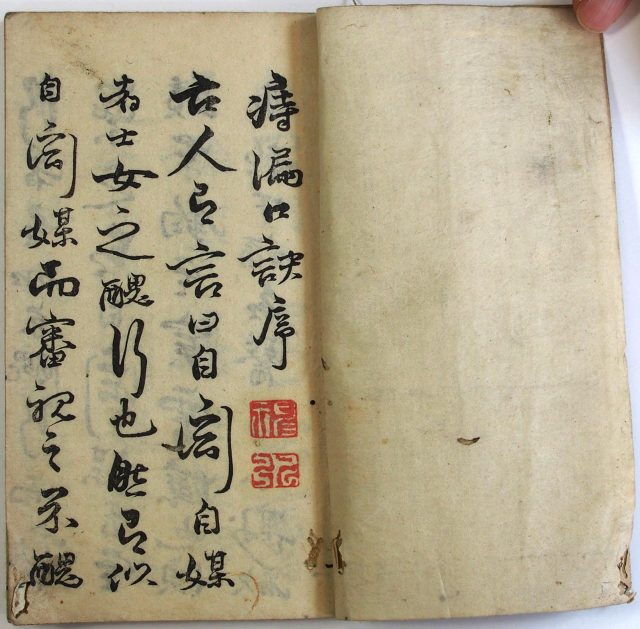 痔漏口訣序
古人有言曰自衒自媒
者士女之醜行也然有似
自衒媒而審視之不醜